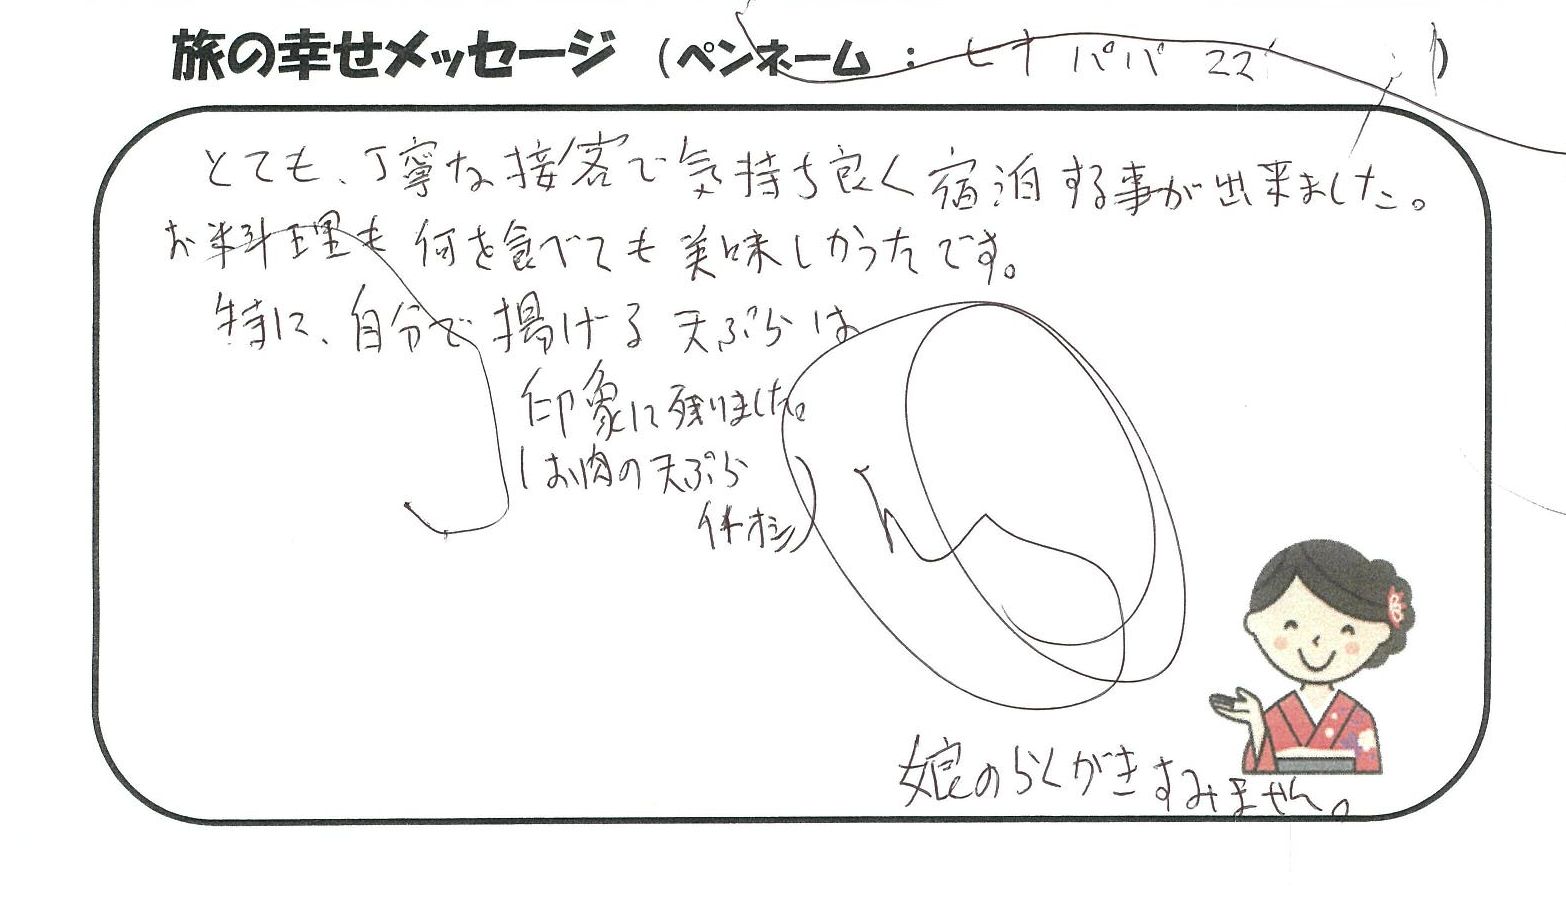 旅の幸せメッセージ (ペンネーム : ヒナパパ22 )
とても、丁寧な接客で気持ち良く宿泊する事が出来ました。
お料理も何を食べても美味しかったです。
特に、自分で揚げる天ぷらは
印象に残りました。
(お肉の天ぷら
イチオシ)
娘のらくがきすみません。